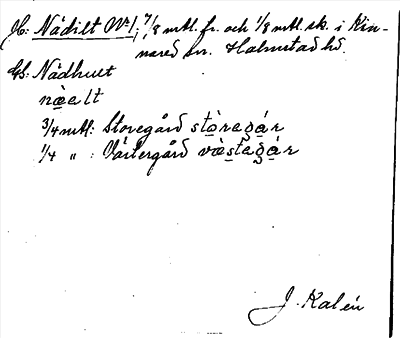 Jb: Nådilt Nº 1; 7/8 mtl. fr. och 1/8 mtl. sk. i Kin-
nared sn. Halmstad hd.
Gb. Nådhult
næ̀alt
3/4 mtl: Storegård stòragár
1/4 " : Västergård væ̀stagár
J. Kalén